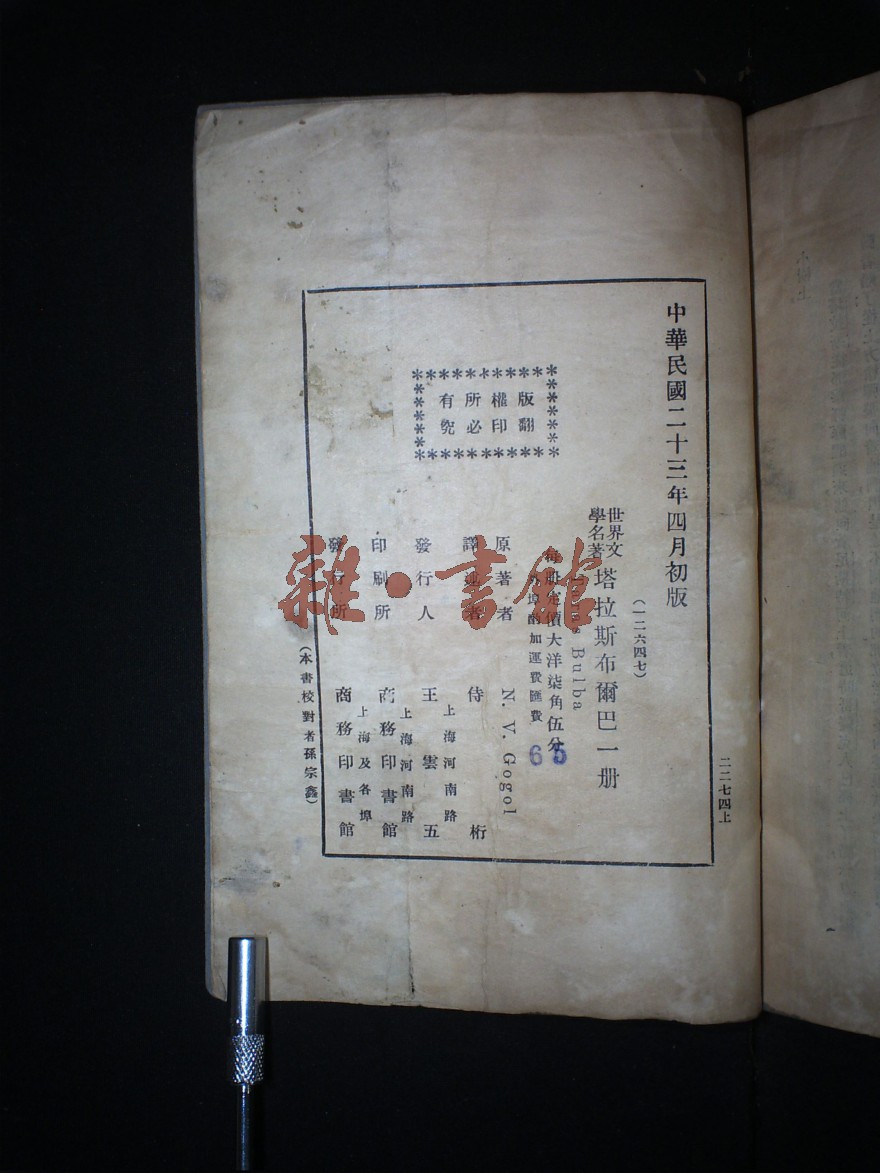 中華民國二十三年四月初版
(一二六四七)
世界文
學名著
塔拉斯布爾巴一册
Taras Bulba
每册定價大洋柒角伍分
外埠酌加運費匯費
65
版權所有
翻印必究
原著者 N. V. Gogol
譯述者 侍桁
發行人 王雲五
上海河南路
印刷所 商務印書館
上海河南路
發行所 商務印書館
上海及各埠
(本書校對者孫宗鑫)
二二七四上
雜·書館